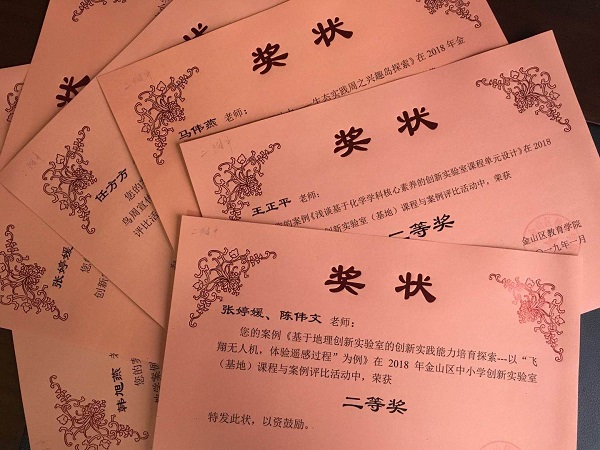 奖 状
张婷媛、陈伟文 老师：
您的案例《基于地理创新实验室的创新实践能力培育探索---以“飞
翔无人机，体验遥感过程”为例》在 2018 年金山区中小学创新实验室
（基地）课程与案例评比活动中，荣获
二等奖
特发此状，以资鼓励。
奖 状
王正平 老师：
的案例《浅谈基于化学学科核心素养的创新实验室课程单元设计》在 2018
创新实验室（基地）课程与案例评比活动中，荣获
二等奖
金山区教育学院
一九年一月
奖 状
马伟燕 老师：
生态实践周之兴趣岛探索》在 2018 年金
任方方
您的
岛周宣
评比活
张婷媛
您
创新
韩旭燕
您的